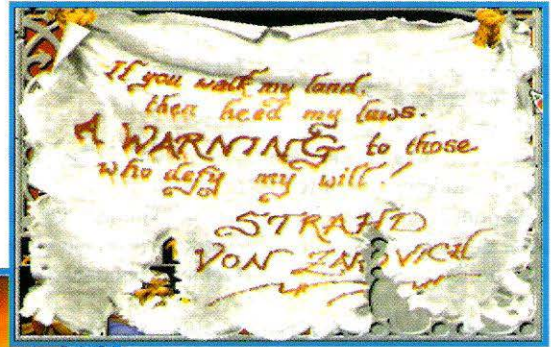 If you walk my land,
then heed my laws.
A WARNING to those
who defy my will!
STRAHD
VON ZAROVICH